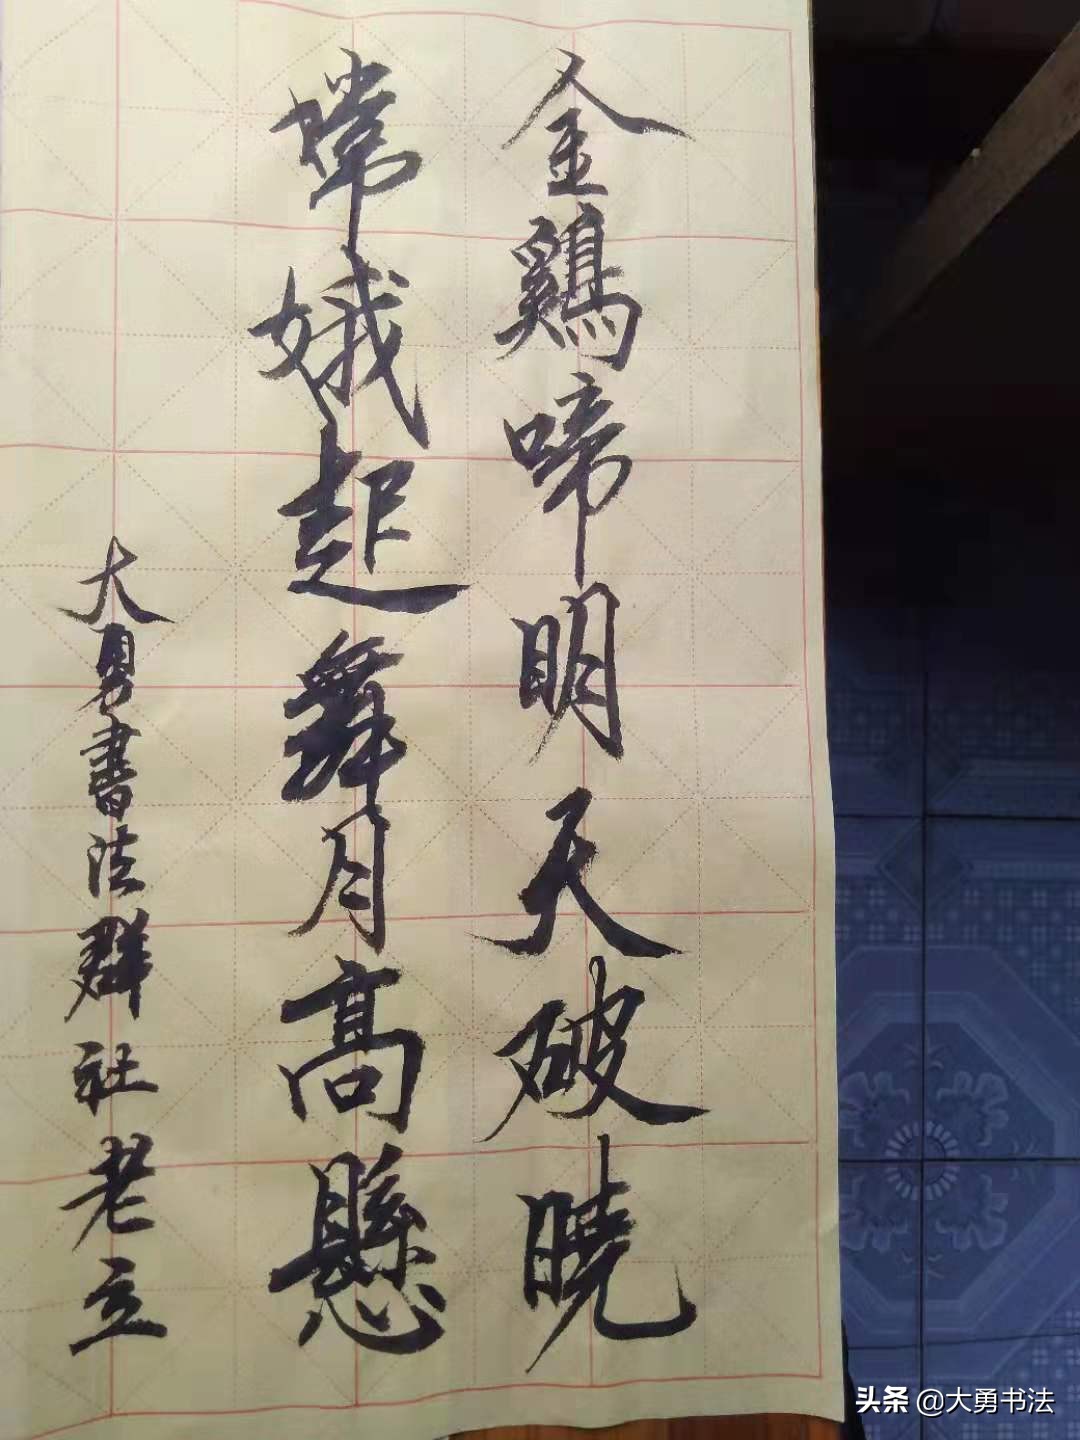 金鷄啼明天破曉
嫦娥起舞月高懸
大勇書法群社老立
头条 @大勇书法